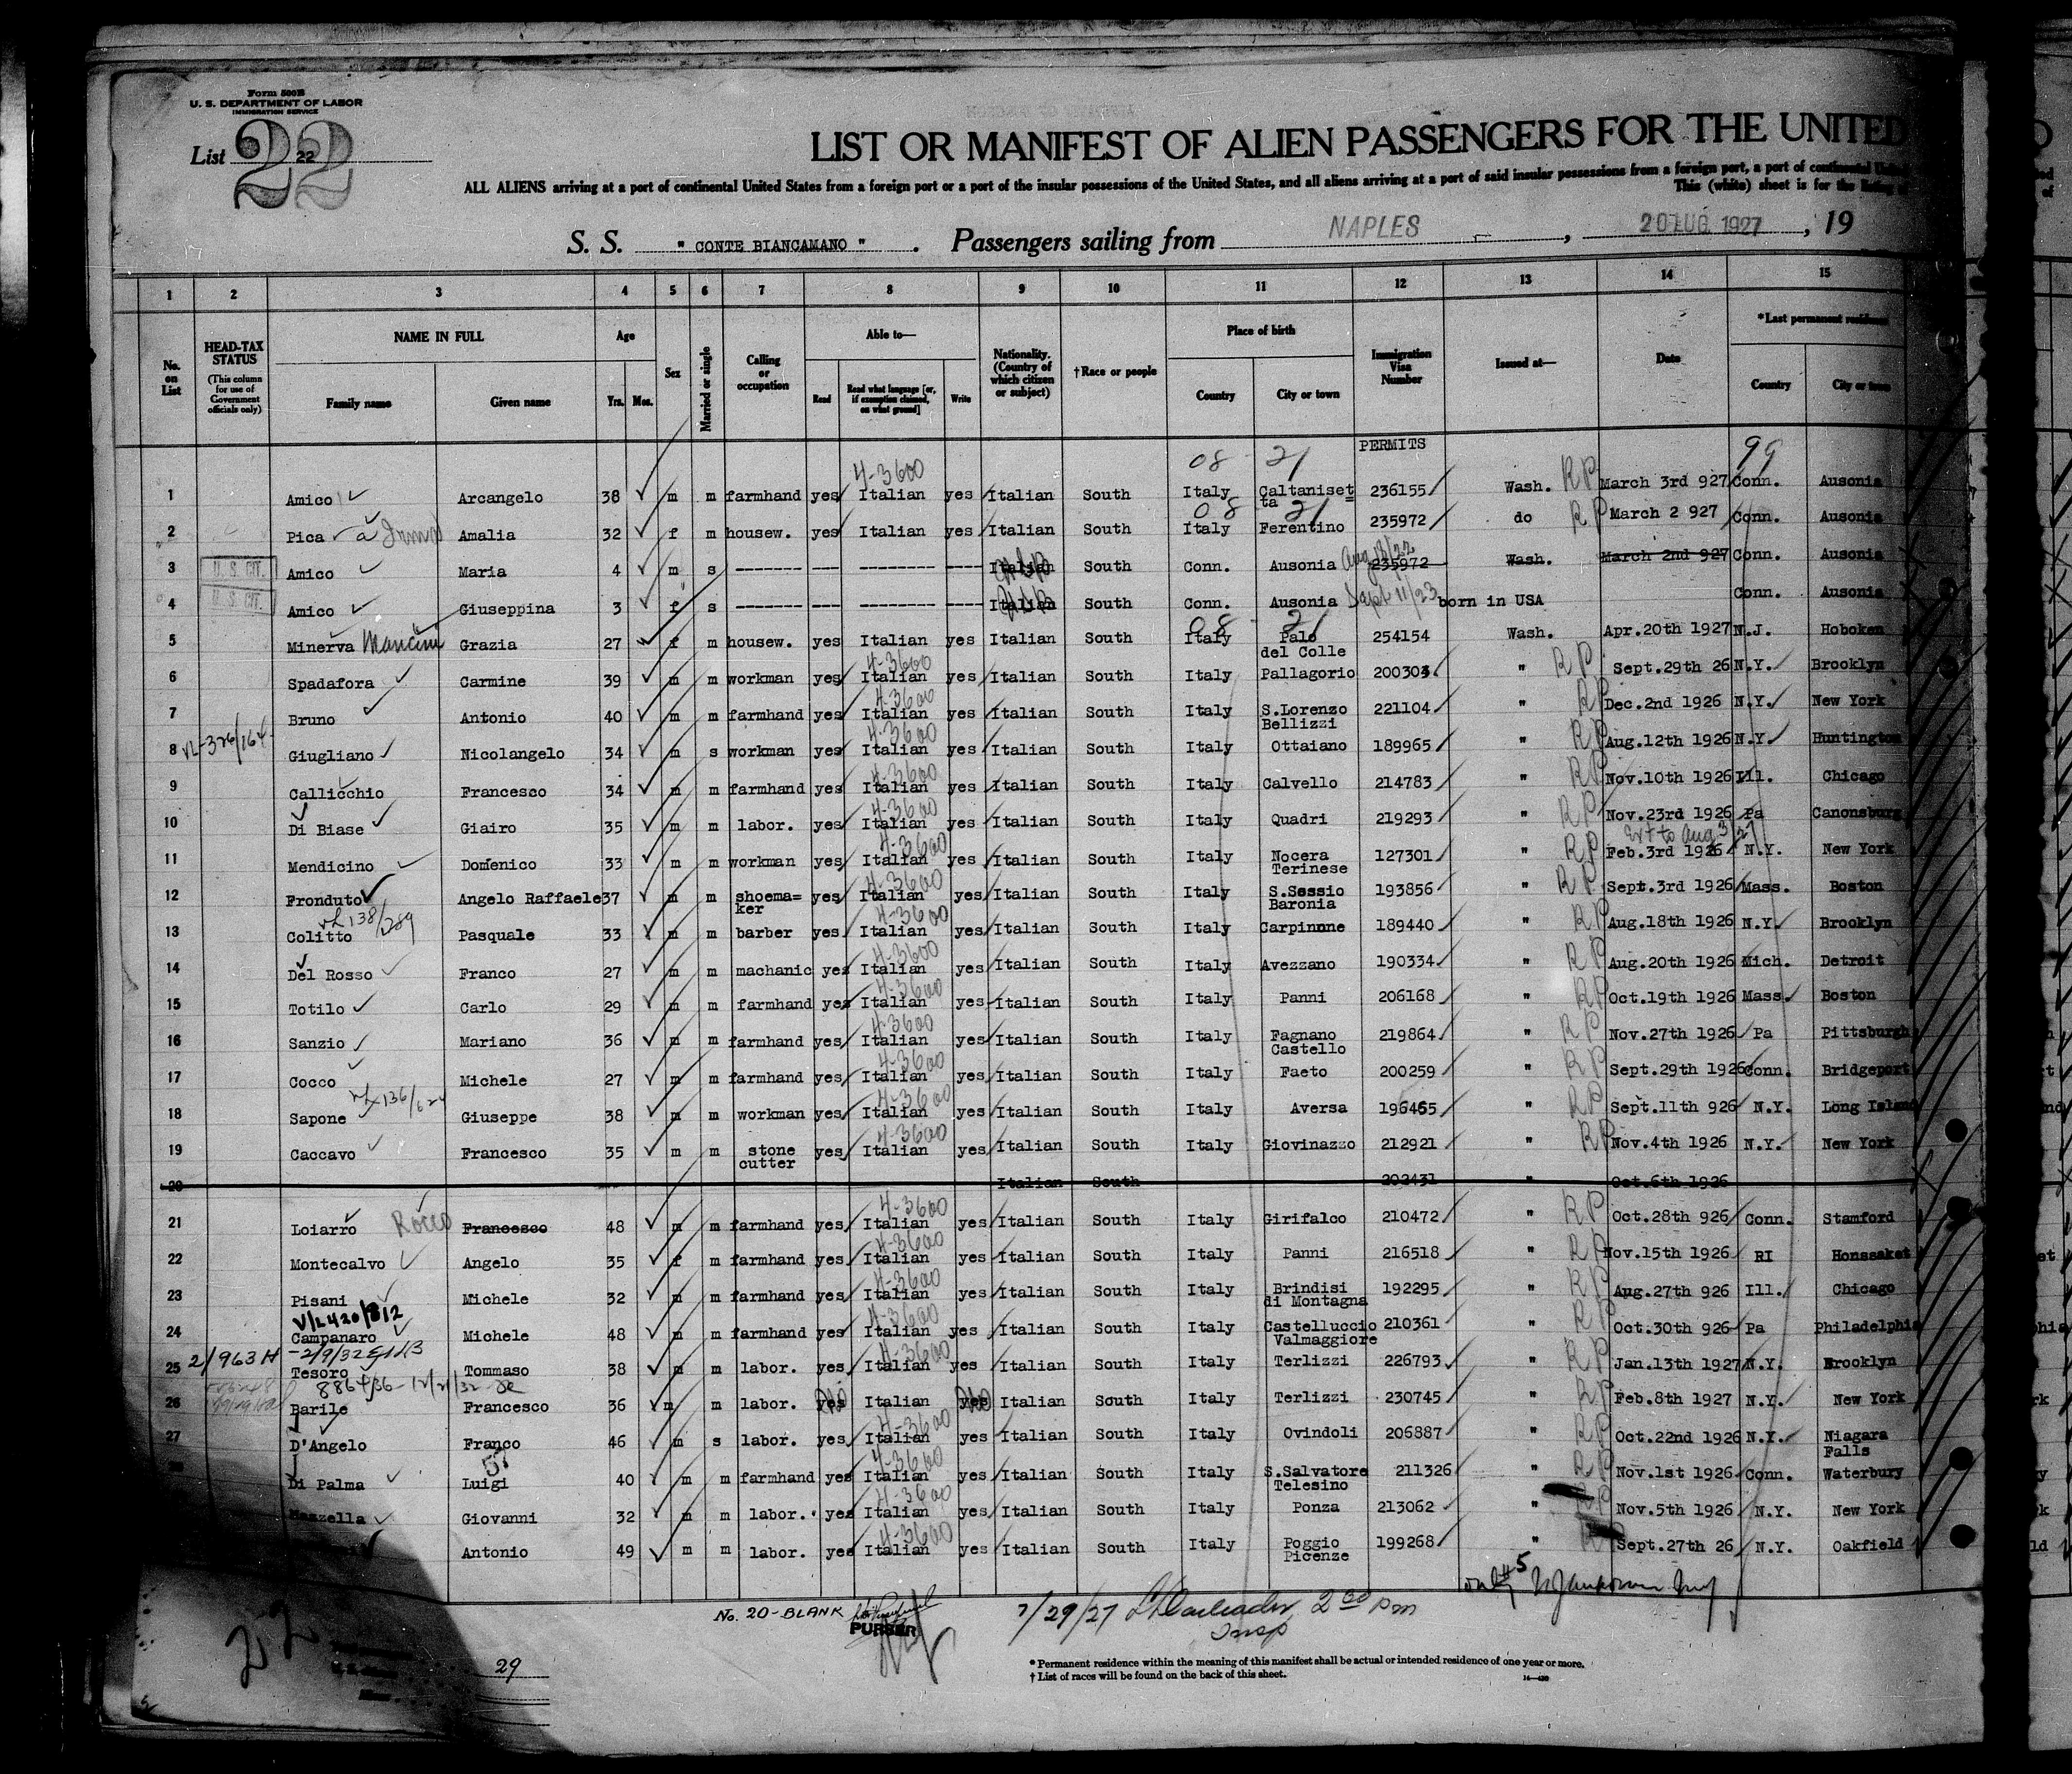 Form 500B
U. S. DEPARTMENT OF LABOR
IMMIGRATION SERVICE
List 22
22
LIST OR MANIFEST OF ALIEN PASSENGERS FOR THE UNITED
ALL ALIENS arriving at a port of continental United States from a foreign port or a port of the insular possessions of the United States, and all aliens arriving at a port of said insular possessions from a foreign port, a port of continental
This (white) sheet is for the listing
S. S. " CONTE BIANCAMANO " . Passengers sailing from NAPLES , 20 LUG. 1927 , 19
1 2 3 4 5 6 7 8 9 10 11 12 13 14 15
No. on List
HEAD-TAX STATUS
(This column for use of Government officials only)
NAME IN FULL
Family name Given name
Age
Yrs. Mos.
Sex
Married or single
Calling or occupation
Able to—
Read
Read what language [or, if exemption claimed, on what ground]
Write
Nationality. (Country of which citizen or subject)
†Race or people
Place of birth
Country City or town
Immigration Visa Number
Issued at—
Date
*Last permanent residence
Country City or town
PERMITS
08 21 99
4-3600
1 Amico Arcangelo 38 m m farmhand yes Italian yes Italian South Italy Caltaniset ta 236155 Wash. RP March 3rd 927 Conn. Ausonia
08 21
2 Pica Amalia 32 f m housew. yes Italian yes Italian South Italy Ferentino 235972 do RP March 2 927 Conn. Ausonia
3 U. S. CIT. Amico Maria 4 m s ------- --- -------- ---- Italian South Conn. Ausonia Aug 13/22 235972 Wash. March 2nd 927 Conn. Ausonia
4 U. S. CIT. Amico Giuseppina 3 f s ------- --- -------- ---- Italian South Conn. Ausonia Sept 11/23 born in USA Conn. Ausonia
08 21
5 Minerva Mancini Grazia 27 f m housew. yes Italian yes Italian South Italy Palo del Colle 254154 Wash. Apr.20th 1927 N.J. Hoboken
4-3600
6 Spadafora Carmine 39 m m workman yes Italian yes Italian South Italy Pallagorio 200304 " RP Sept.29th 26 N.Y. Brooklyn
4-3600
7 Bruno Antonio 40 m m farmhand yes Italian yes Italian South Italy S.Lorenzo Bellizzi 221104 " RP Dec.2nd 1926 N.Y. New York
4-3600
8 VL-326/164 Giugliano Nicolangelo 34 m s workman yes Italian yes Italian South Italy Ottaiano 189965 " RP Aug.12th 1926 N.Y. Huntington
4-3600
9 Callicchio Francesco 34 m m farmhand yes Italian yes Italian South Italy Calvello 214783 " RP Nov.10th 1926 Ill. Chicago
4-3600
10 Di Biase Giairo 35 m m labor. yes Italian yes Italian South Italy Quadri 219293 " RP Nov.23rd 1926 Pa Canonsburg
4-3600 Ext to Aug 3/27
11 Mendicino Domenico 33 m m workman yes Italian yes Italian South Italy Nocera Terinese 127301 " RP Feb.3rd 1926 N.Y. New York
4-3600
12 Fronduto Angelo Raffaele 37 m m shoema= ker yes Italian yes Italian South Italy S.Sossio Baronia 193856 " RP Sept.3rd 1926 Mass. Boston
VL 138/289 4-3600
13 Colitto Pasquale 33 m m barber yes Italian yes Italian South Italy Carpinone 189440 " RP Aug.18th 1926 N.Y. Brooklyn
4-3600
14 Del Rosso Franco 27 m m machanic yes Italian yes Italian South Italy Avezzano 190334 " RP Aug.20th 1926 Mich. Detroit
4-3600
15 Totilo Carlo 29 m m farmhand yes Italian yes Italian South Italy Panni 206168 " RP Oct.19th 1926 Mass. Boston
4-3600
16 Sanzio Mariano 36 m m farmhand yes Italian yes Italian South Italy Fagnano Castello 219864 " RP Nov.27th 1926 Pa Pittsburgh
4-3600
17 Cocco Michele 27 m m farmhand yes Italian yes Italian South Italy Faeto 200259 " RP Sept.29th 1926 Conn. Bridgeport
4-3600
18 Sapone Giuseppe 38 m m workman yes Italian yes Italian South Italy Aversa 196465 " RP Sept.11th 926 N.Y. Long Island
4-3600
19 Caccavo Francesco 35 m m stone cutter yes Italian yes Italian South Italy Giovinazzo 212921 " RP Nov.4th 1926 N.Y. New York
20 Italian South 202431 " Oct.6th 1926
4-3600
21 Loiarro Rocco Francesco 48 m m farmhand yes Italian yes Italian South Italy Girifalco 210472 " RP Oct.28th 926 Conn. Stamford
4-3600
22 Montecalvo Angelo 35 f m farmhand yes Italian yes Italian South Italy Panni 216518 " RP Nov.15th 1926 RI Honssaket
4-3600
23 Pisani Michele 32 m m farmhand yes Italian yes Italian South Italy Brindisi di Montagna 192295 " RP Aug.27th 926 Ill. Chicago
V/L 420/812 4-3600
24 Campanaro Michele 48 m m farmhand yes Italian yes Italian South Italy Castelluccio Valmaggiore 210361 " RP Oct.30th 926 Pa Philadelphia
4-3600
25 Tesoro Tommaso 38 m m labor. yes Italian yes Italian South Italy Terlizzi 226793 " RP Jan.13th 1927 N.Y. Brooklyn
26 Barile Francesco 36 m m labor. yes Italian yes Italian South Italy Terlizzi 230745 " RP Feb.8th 1927 N.Y. New York
4-3600
27 D'Angelo Franco 46 m s labor. yes Italian yes Italian South Italy Ovindoli 206887 " RP Oct.22nd 1926 N.Y. Niagara Falls
4-3600
Di Palma Luigi 40 m m farmhand yes Italian yes Italian South Italy S.Salvatore Telesino 211326 " RP Nov.1st 1926 Conn. Waterbury
4-3600
Mazzella Giovanni 32 m m labor. yes Italian yes Italian South Italy Ponza 213062 " RP Nov.5th 1926 N.Y. New York
4-3600
Antonio 49 m m labor. yes Italian yes Italian South Italy Poggio Picenze 199268 " Sept.27th 26 N.Y. Oakfield
No. 20-BLANK
PURSER
7/29/27 2 00 pm
Insp
22
29
* Permanent residence within the meaning of this manifest shall be actual or intended residence of one year or more.
† List of races will be found on the back of this sheet.